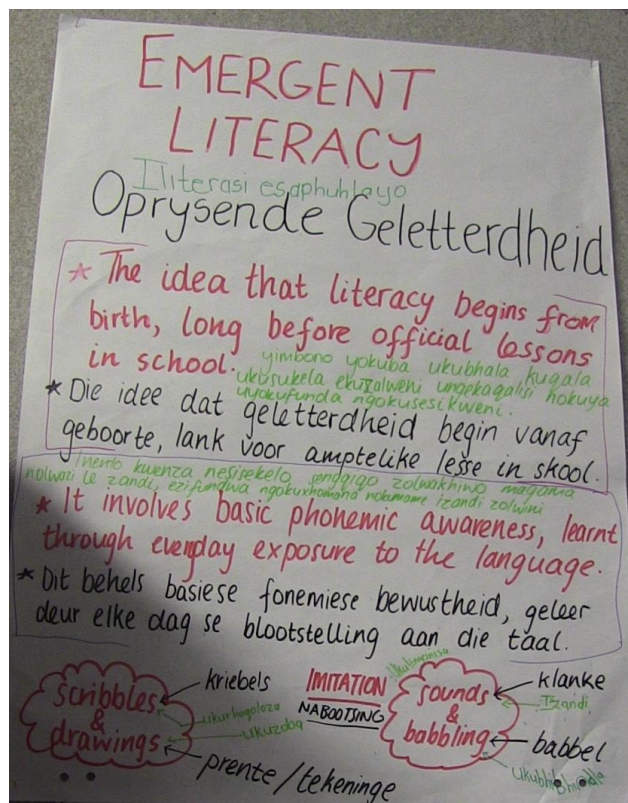 EMERGENT
LITERACY
Iliterasi esaphuhlayo
Oprysende Geletterdheid
* The idea that literacy begins from
birth, long before official lessons
in school.
yimbono yokuba ukubhala kuqala
ukusukela ekuzalweni ungekaqalisi nokuya
uyokufunda ngokusesikweni.
* Die idee dat geletterdheid begin vanaf
geboorte, lank voor amptelike lesse in skool.
Inento kwenza nesisekelo sengqiqo zolwakhiwo magama
nolwazi le zandi, ezifundwa ngokuxhomana nokumame izandi zolwimi
* It involves basic phonemic awareness, learnt
through everyday exposure to the language.
* Dit behels basiese fonemiese bewustheid, geleer
deur elke dag se blootstelling aan die taal.
scribbles
&
drawings
kriebels
ukurhoqoloza
ukuzoba
prente/tekeninge
IMITATION
NABOOTSING
Ukulimanisa
sounds
&
babbling
klanke
Izandi
babbel